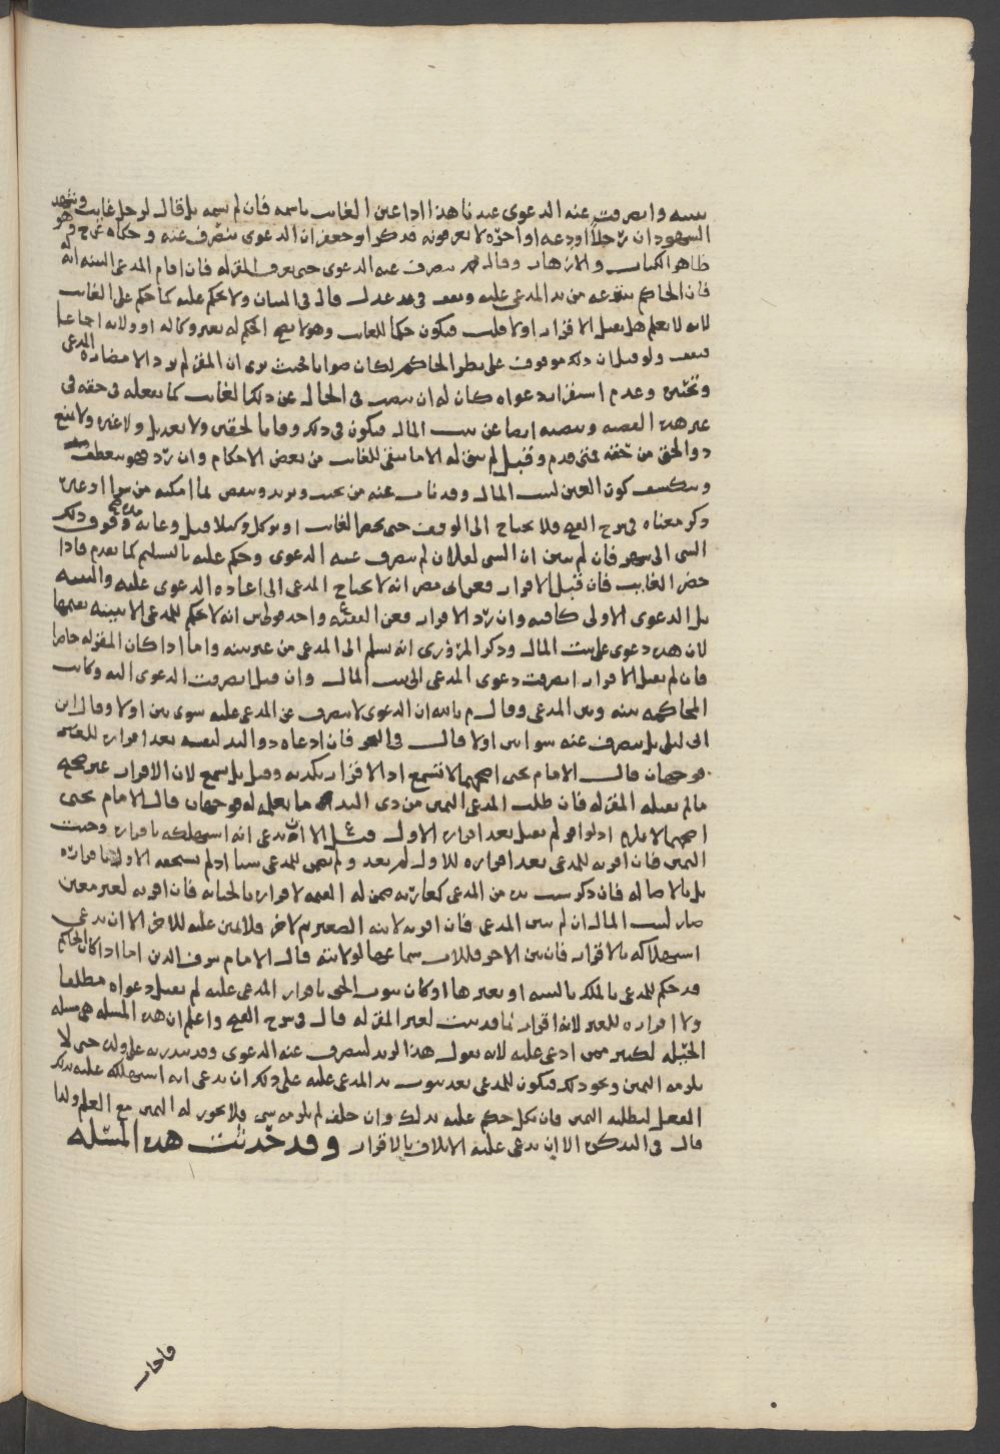 بينه وانصرفت عنه الدعوى عندنا هذا اذا عين الغائب باسمه فان لم يسمه بل قال لرجل غايب وشهد
الشهود ان رجلاً اودعه او اجره لا يعرفونه فذكر ابو جعفر ان الدعوى تنصرف عنه وحكاه في ح وهو
ظاهر الكتاب والازهار وقال م لا تنصرف عنه الدعوى حتى يعرف المقر له فان اقام المدعي البينة انه له
فان الحاكم ينتزعه من يد المدعى عليه ويقف في يد عدل قال في البيان ولا يحكم عليه كما حكم على الغائب
لانه لا يعلم هل يقبل الاقرار اولا قلت فيكون حكما للغائب وهو لا يصح الحكم له بغير وكاله او ولاية اجماعا
فيقف ولو قيل ان ذلك موقوف على نظر الحاكم لكان صوابا بحيث يرى ان المقر لم يرد الا مضارة المدعي
وعدم استقرار دعواه كان له ان ينصب في الحال عن ذلك الغائب كما يفعله في حقه في
غير هذه القصه وينصبه ايضا عن بيت المال فيكون في ذلك وفا بالحقين ولا تعديل ولا غيره ولا يمنع
ذو الحق من حقه متى قدم وقيل لم يبق له الا ما بقي للغائب من بعض الاحكام وان رد فهو منعطف
وينكشف كون العين لبيت المال وقد ناب عنه من يجب
ذكر معناه في شرح الفتح فلا يحتاج الى الوقف حتى يحضر الغائب او يوكل وكيلا قبل وغايه وقوف ذلك
الشي الى شهر فان لم يبين ان الشي لفلان لم تنصرف عنه الدعوى وحكم عليه بالتسليم كما تقدم فاذا
حضر الغايب فان قبل الاقرار فعن ابي مضر انه لا يحتاج المدعي الى اعاده الدعوى عليه والبينه
بل الدعوى الاولى كافيه وان رد الاقرار فعن الفقيه واحد قولي س انه لا يحكم للمدعي الا ببينة يقيمها
لان هذه دعوى على بيت المال وذكر المرذري انه يسلم الى المدعي من غير بينه واما اذا كان المقر له حاضرا
فان لم يقبل الاقرار انصرفت دعوى المدعي الى بيت المال وان قبل انصرفت الدعوى اليه وكانت
المحاكمه بينه وبين المدعي وقال م بالله ان الدعوى لا تنصرف عن المدعى عليه سوى بين اولا وقال ابن
ابي ليلى بل تنصرف عنه سوا بين اولا قال في البحر فان ادعاه ذو اليد لنفسه بعد اقراره للغير
فوجهان قال الامام يحيى اصحهما لا تسمع اذ الاقرار يكذبه وقيل بل تسمع لان الاقرار غير صحيح
ما لم يقبله المقر له فان طلب المدعي اليمين من ذي اليد ما يعلمه له فوجهان قال الامام يحيى
اصحهما لا يلزم اذ لو اقر لم يقبل بعد اقراره الاول قيل الا ان يدعي انه استهلكه باقراره وجبت
اليمين فان اقر به للمدعي بعد اقراره للاول لم يفد ولم يضمن للمدعي شيئا اذ لم يستحقه الاول باقراره
بل بالاصاله فان ذكر سبب يده من المدعي كعاريه ضمن له القيمه لاقراره بالجنايه فان اقر به لغير معين
صار لبيت المال ان لم يبين المدعي فان اقر به لابنه الصغير ثم لاخر فلا يمين عليه للاخر الا ان يدعي
استهلاكه بالاقرار فان بين الاخر فللاب سماعها لولايته قال الامام شرف الدين اما اذا كان الحاكم
قد حكم للمدعي بالملك بالبينه او بغيرها او كان ثبوت الحق باقرار المدعى عليه لم تقبل دعواه مطلقا
ولا اقراره للغير لانه اقرار بما قد ثبت لغير المقر له قال في شرح الفتح واعلم ان هذه المسله هي مسله
الحيله لكثير ممن ادعي عليه لانه يقول هذا لولدي لتنصرف عنه الدعوى وقد ينذر به على ولده حتى لا
يلزمه اليمين ونحو ذلك فيكون للمدعي بعد ثبوت يد المدعى عليه على ذلك ان يدعي انه استهلكه عليه بذلك
الفعل ليطلبه اليمين فان نكل حكم عليه بذلك وان حلف لم يلزمه شي فلا يجوز له اليمين مع العلم ولذا
قال في التذكره الا ان يدعي عليه الاتلاف بالاقرار وقد حدثت هذه المسئله
فاجاب